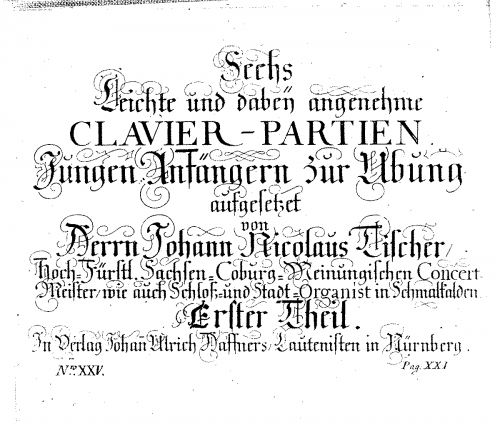 Sechs
Leichte und dabeÿ angenehme
CLAVIER-PARTIEN
Jungen Anfängern zur Ubung
aufgesetzet
von
Herrn Johann Nicolaus Tischer,
Hoch-Fürstl. Sachsen-Coburg-Meinungischen Concert
Meister, wie auch Schloß-und Stadt-Organist in Schmalkalden
Erster Theil.
In Verlag Johan Ulrich Haffners, Lautenisten in Nürnberg.
Nro XXV.
Pag. XXI